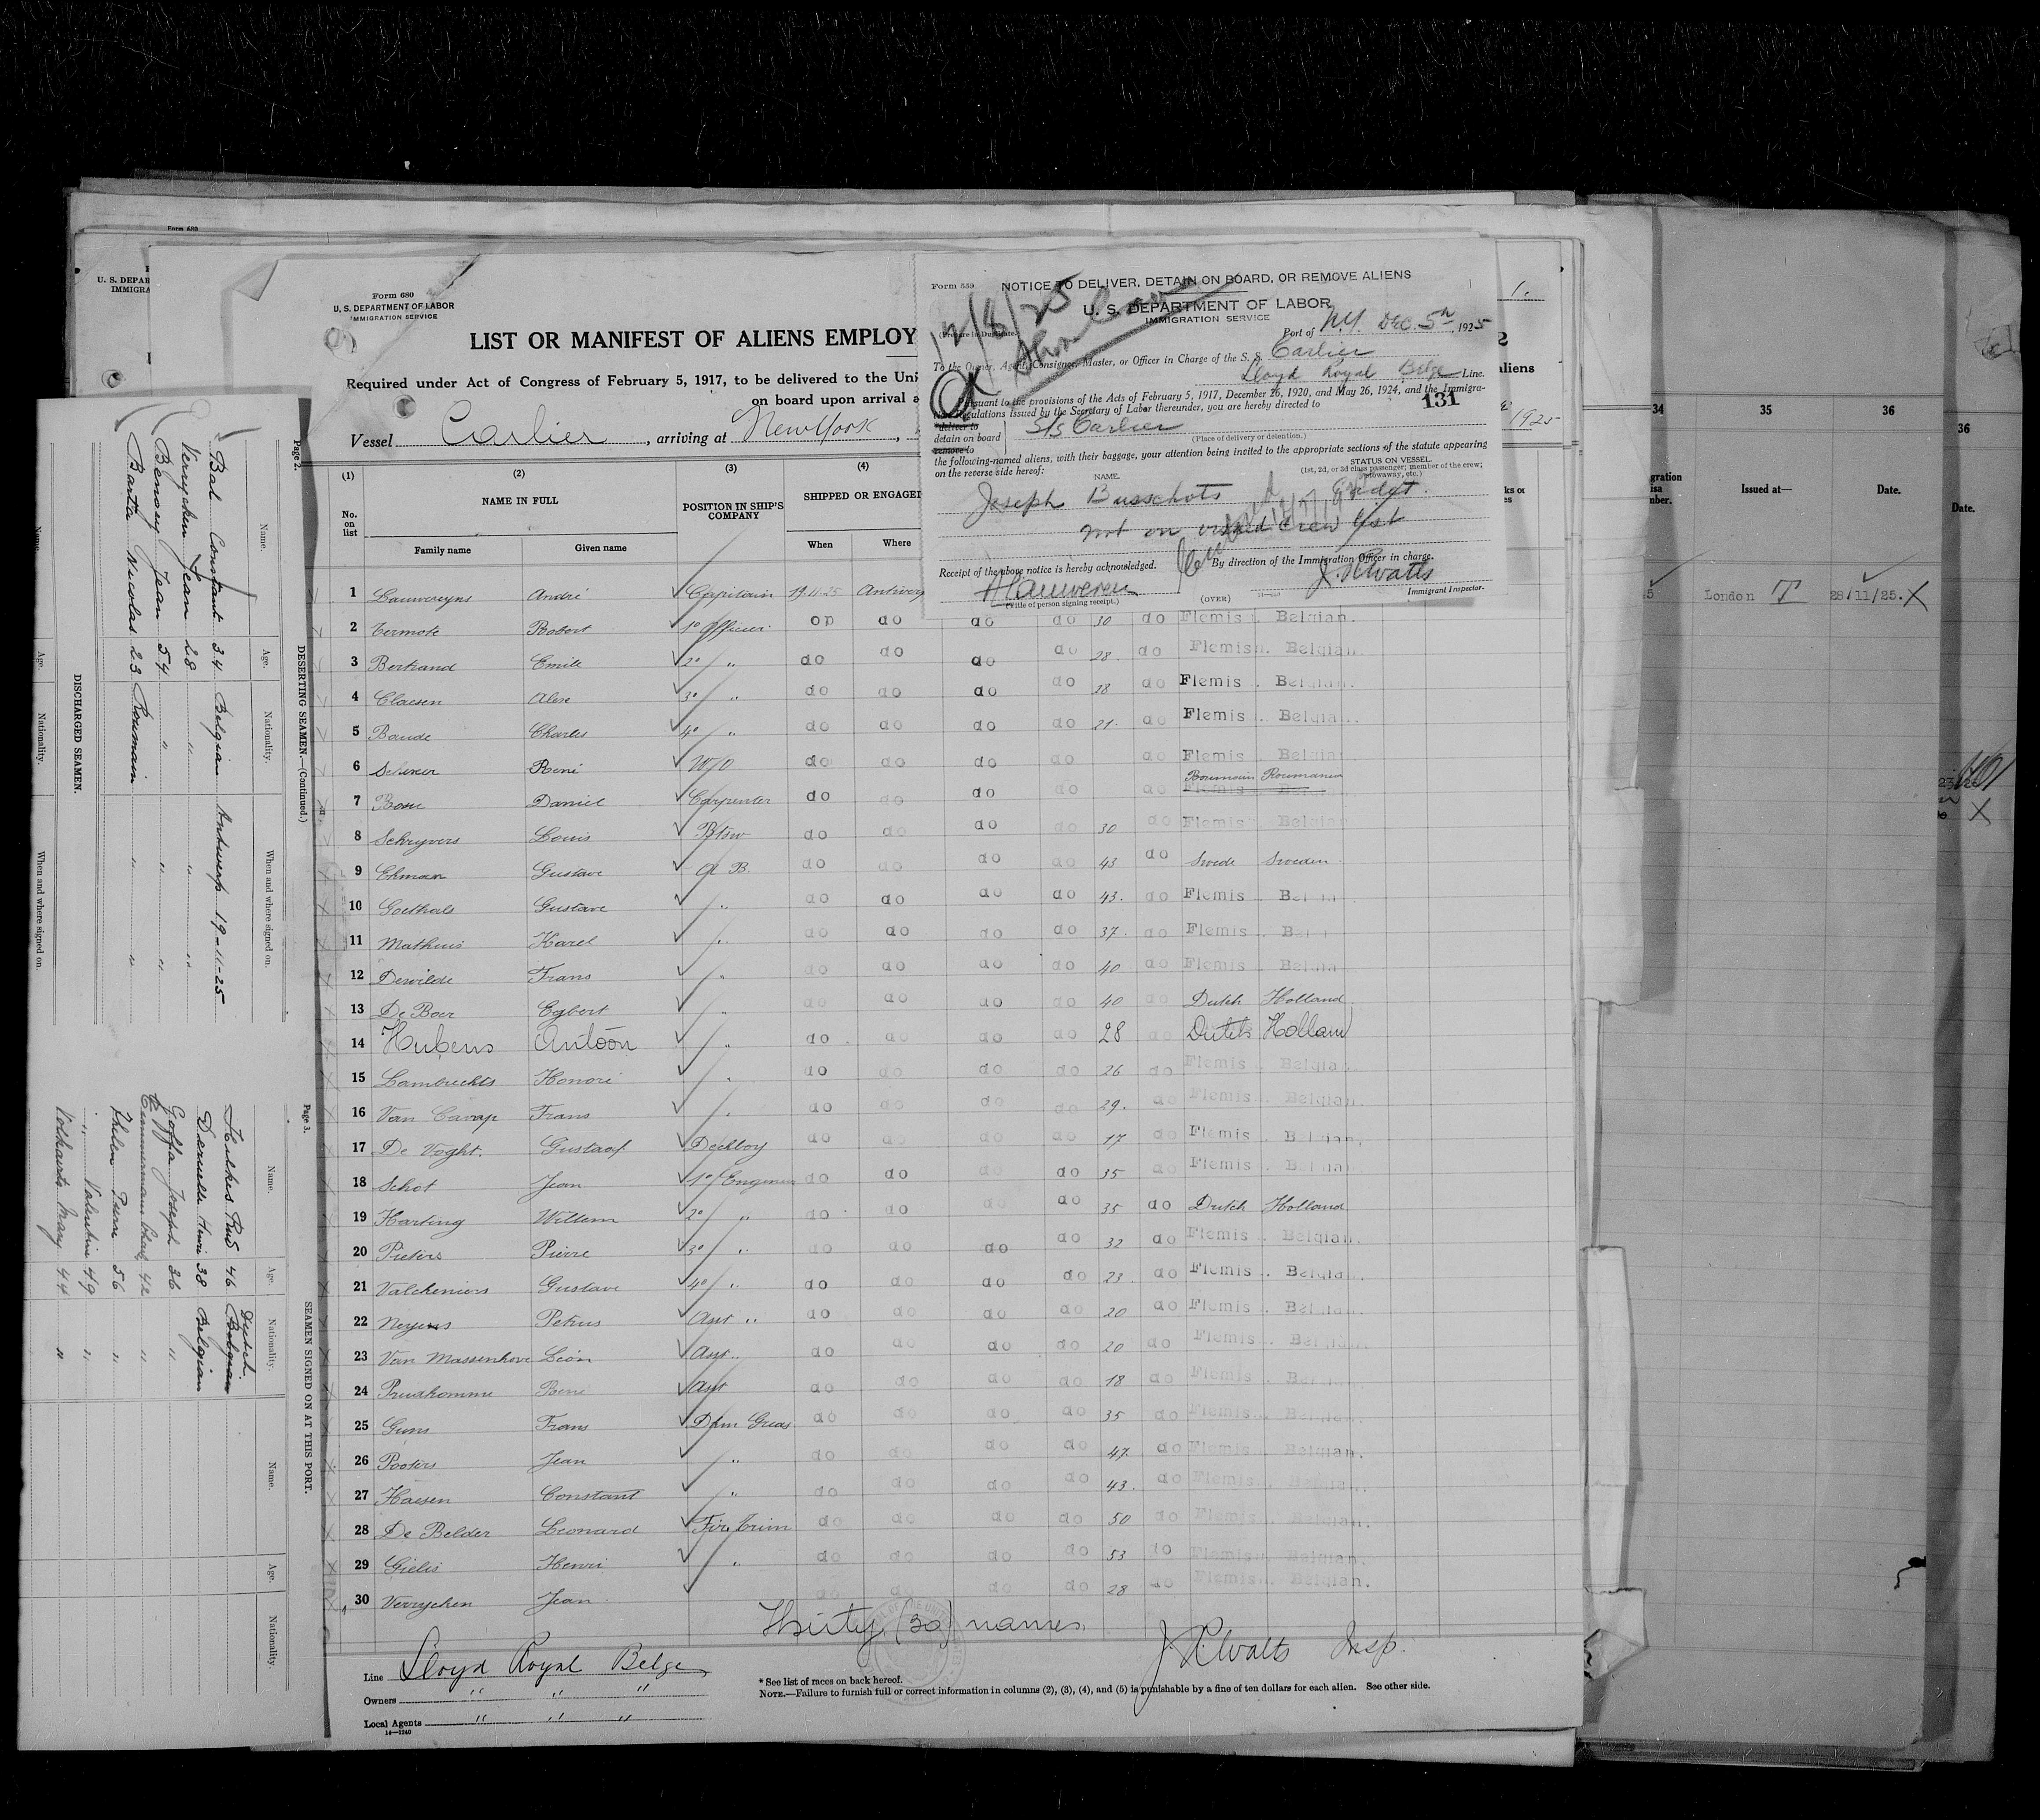 Form 680
U. S. DEPARTMENT OF LABOR
IMMIGRATION SERVICE
LIST OR MANIFEST OF ALIENS EMPLOY
Required under Act of Congress of February 5, 1917, to be delivered to the Uni
on board upon arrival a
Vessel Carlier, arriving at New York,
Form 559
NOTICE TO DELIVER, DETAIN ON BOARD, OR REMOVE ALIENS
U. S. DEPARTMENT OF LABOR
IMMIGRATION SERVICE
12/8/25
Port of N.Y. Dec. 5th, 1925
To the Owner, Agent, Consignor, Master, or Officer in Charge of the S. S. Carlier
Lloyd Royal Belge Line.
Pursuant to the provisions of the Acts of February 5, 1917, December 26, 1920, and May 26, 1924, and the Immigra-
tion Regulations issued by the Secretary of Labor thereunder, you are hereby directed to
131
deliver to
detain on board S/S Carlier
remove to
(Place of delivery or detention.)
the following-named aliens, with their baggage, your attention being invited to the appropriate sections of the statute appearing
on the reverse side hereof:
NAME.
STATUS ON VESSEL
(1st, 2d, or 3d class passenger; member of the crew; stowaway, etc.)
Joseph Busschots
not on visaed crew list
Receipt of the above notice is hereby acknowledged.
By direction of the Immigration Officer in charge.
J. R. Watts
(Title of person signing receipt.)
(OVER)
Immigrant Inspector.
(1) (2) (3) (4)
No. on list
NAME IN FULL
POSITION IN SHIP'S COMPANY
SHIPPED OR ENGAGED
Family name Given name When Where
1 Lauwereyns André Capitain 19-11-25 Antwerp
2 Termote Robert 1º Officer do do do 30 do Flemis. Belgian.
3 Bertrand Emile 2º " do do do do 28 do Flemish. Belgian.
4 Claesen Alex 3º " do do do do 28 do Flemis. Belgian.
5 Baude Charles 4º " do do do do 21 do Flemis. Belgian.
6 Scherer René W/O do do do do do Flemis Belgian
Roumain Roumanen
7 Rosu Daniel Carpenter do do do do do Flemis Belgian
8 Schryvers Louis Btsw do do do do 30 do Flemis Belgian
9 Ekman Gustave A B. do do do do 43 do Swede Sweden
10 Goethals Gustave " do do do do 43. do Flemis Belgian
11 Mathuis Karel " do do do do 37. do Flemis Belgian
12 Dewilde Frans " do do do do 40 do Flemis Belgian
13 De Boer Egbert " do do do do 40 do Dutch Holland
14 Hubens Antoon " do do do do 28 do Dutch Holland
15 Lambrechts Honoré " do do do do 26 do Flemis Belgian.
16 Van Camp Frans " do do do do 29. do Flemis. Belgian.
17 De Voght. Gustaaf Deckboy do do do do 17 do Flemis. Belgian.
18 Schot Jean 1º Engineer do do do do 35 do Flemis. Belgian.
19 Harting Willem 2º " do do do do 35 do Dutch Holland
20 Pieters Pierre 3º " do do do do 32 do Flemis. Belgian.
21 Valckeniers Gustave 4º " do do do do 23 do Flemis. Belgian.
22 Neyens Petrus Asst " do do do do 20 do Flemis. Belgian.
23 Van Massenhove Léon Asst " do do do do 20 do Flemis. Belgian.
24 Prudhomme René Asst do do do do 18 do Flemis. Belgian.
25 Guns Frans Dkm Greas do do do do 35 do Flemis. Belgian.
26 Pooters Jean " do do do do 47 do Flemis. Belgian.
27 Haesen Constant " do do do do 43. do Flemis. Belgian.
28 De Belder Leonard Fir. trim do do do do 50 do Flemis. Belgian.
29 Gielis Henri " do do do do 53 do Flemish. Belgian.
30 Verrycken Jean do do do do 28 do Flemis. Belgian.
Thirty (30) names
J. R. Watts Insp.
Line Lloyd Royal Belge
Owners " " "
Local Agents " " "
14—1240
* See list of races on back hereof.
NOTE.—Failure to furnish full or correct information in columns (2), (3), (4), and (5) is punishable by a fine of ten dollars for each alien. See other side.
Page 2.
DESERTING SEAMEN.—(Continued.)
Name. Age. Nationality. When and where signed on.
Bal Constant 34 Belgian Antwerp 19-11-25
Verrycken Jean 28 " " "
Bensey Jean 54 " " "
Bartta Nicolas 23 Roumain " "
DISCHARGED SEAMEN.
Name. Age. Nationality. When and where signed on.
Page 3.
SEAMEN SIGNED ON AT THIS PORT.
Name. Age. Nationality. Name. Age. Nationality.
Dutch
46 Belgian
Henri 38 Belgian
Goffa Joseph 36 "
42 "
Pierre 56 "
Valentin 49 "
44 "
Form 680
U. S. DEPAR
IMMIGRA
1.
liens
1925
34 35 36
gration
isa
nber.
Issued at—
Date.
London
28/11/25. X
36
Date.
X